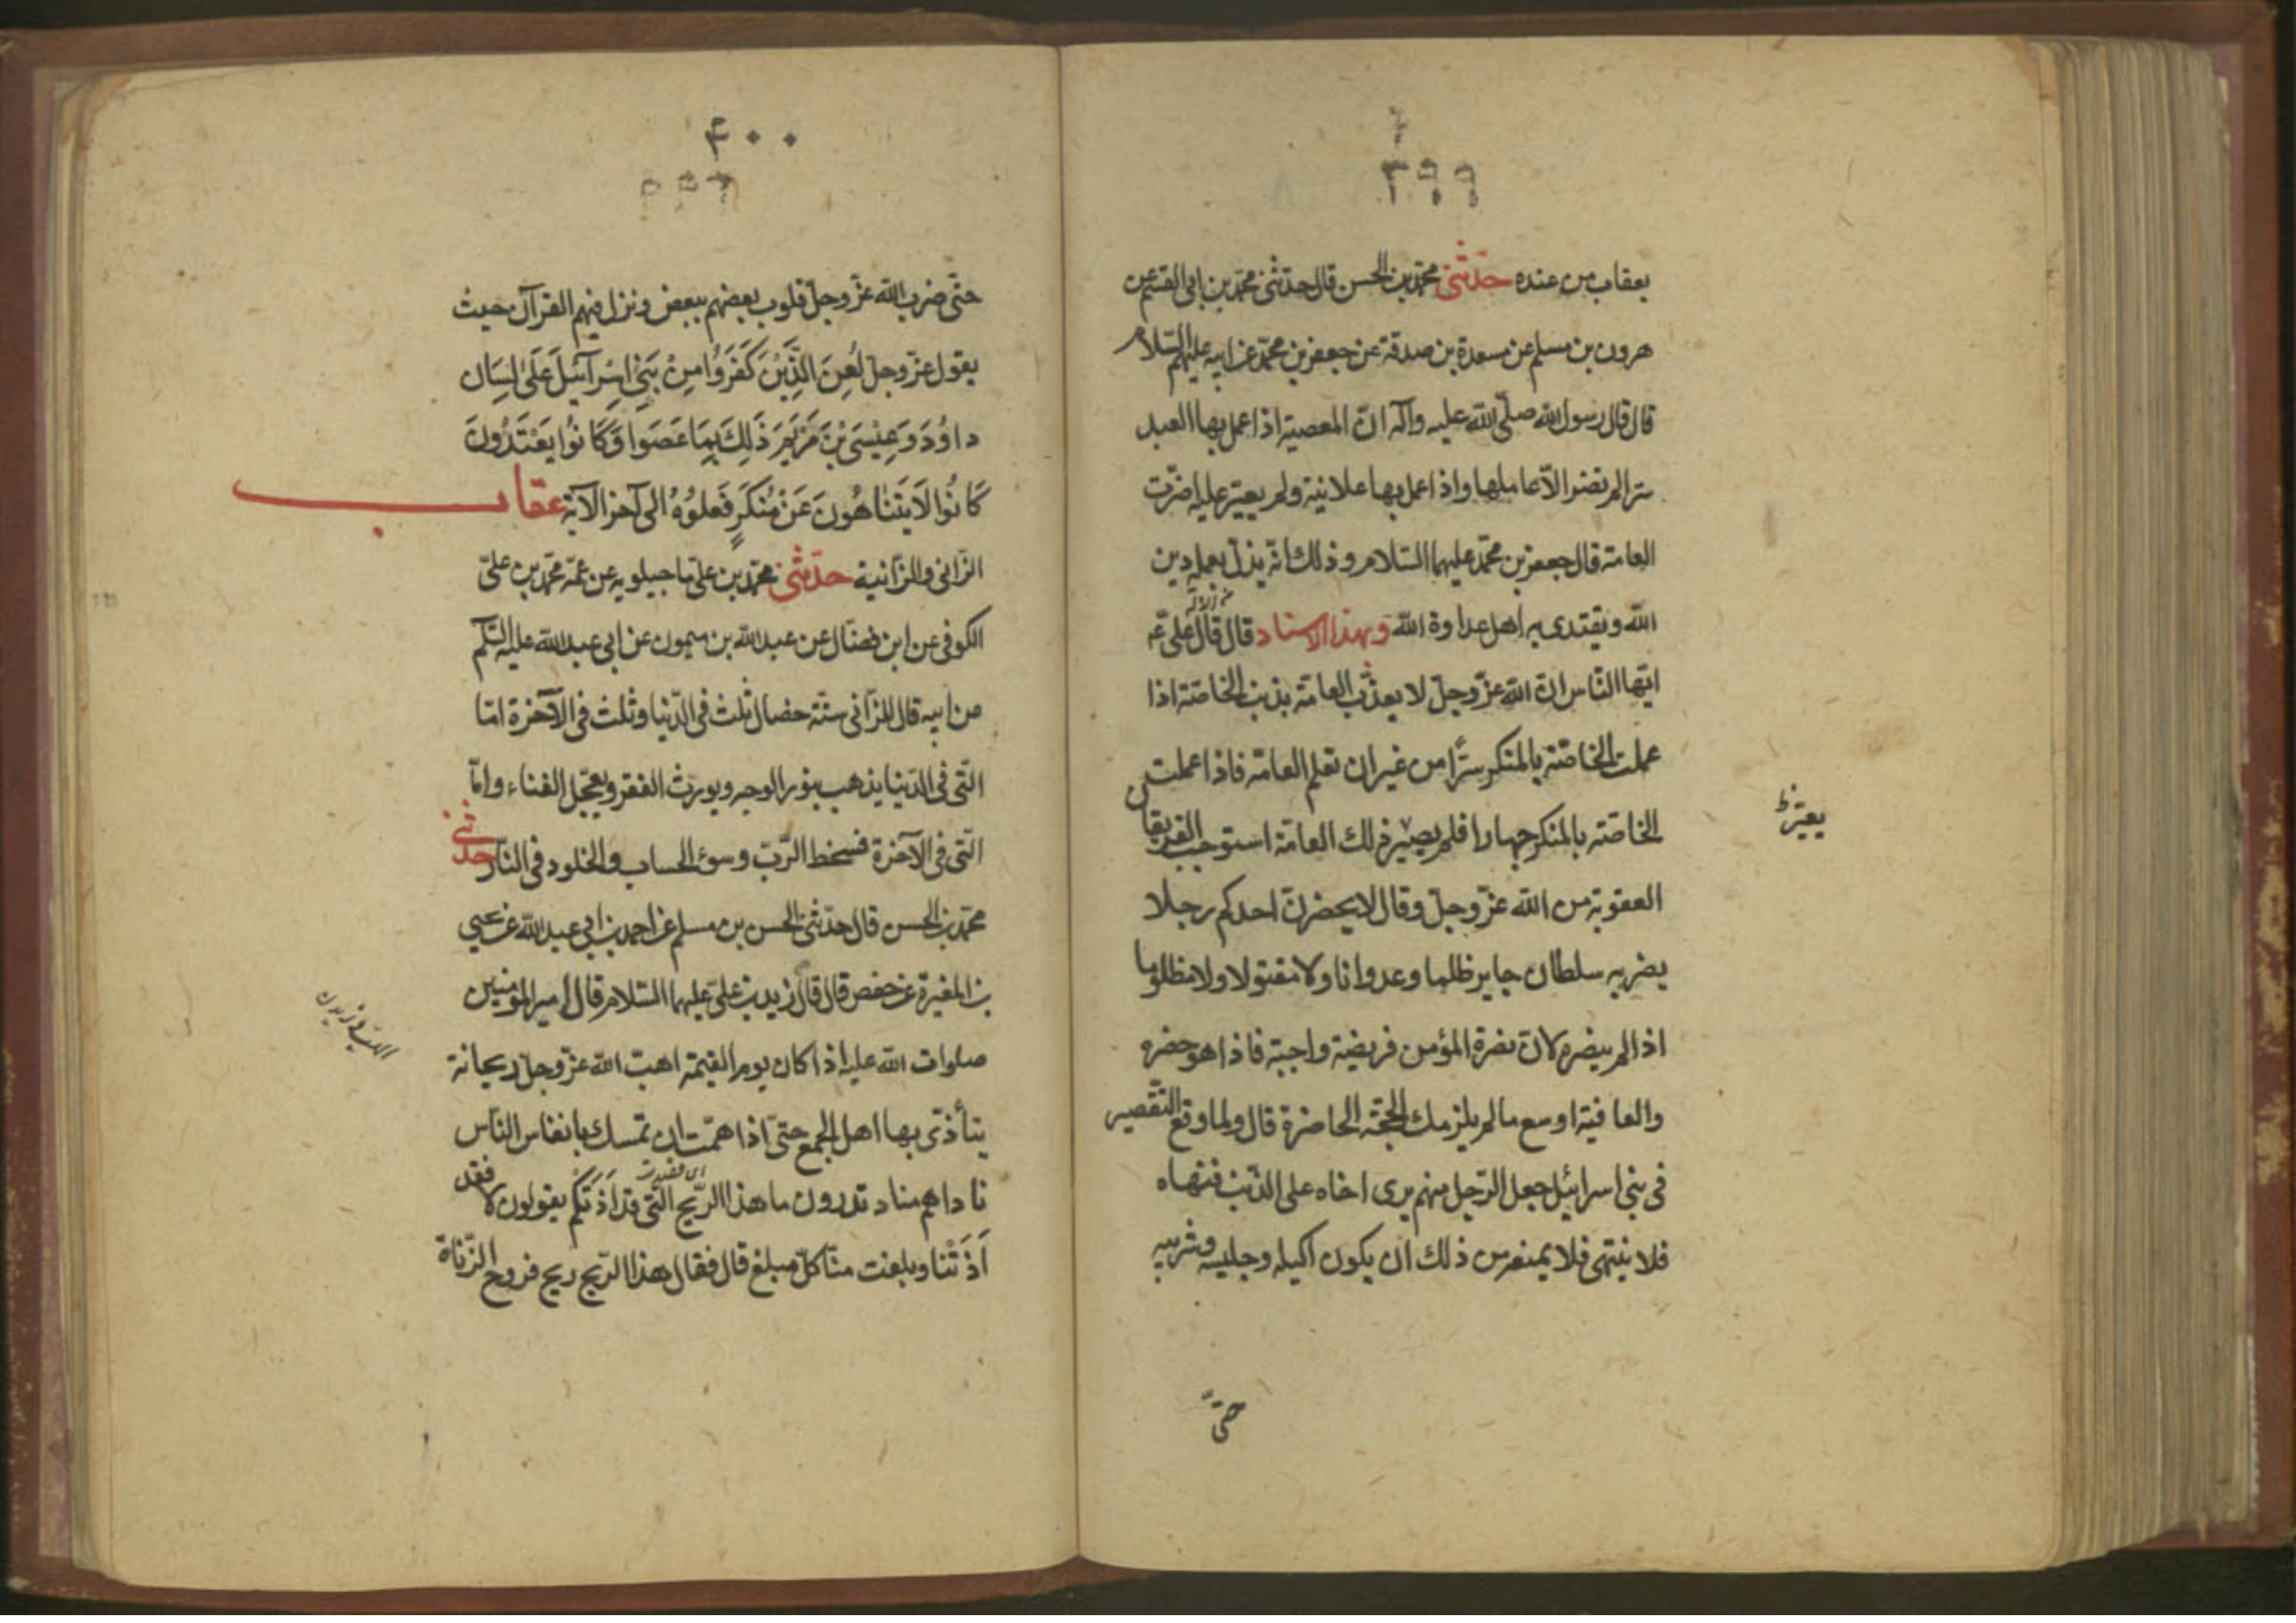 ٣٩٩
بعقاب من عنده حدّثنى محمّد بن الحسن قال حدّثنى محمّد بن ابى القسم عن
هرون بن مسلم عن مسعدة بن صدقة عن جعفر بن محمّد عن ابيه عليهم السّلام
قال قال رسول الله صلّى الله عليه وآله انّ المعصية اذا عمل بها العبد
سرّا لم تضر الّا عاملها واذا عمل بها علانية ولم يعيّر عليه اضرّت
العامة قال جعفر بن محمّد عليهما السّلام وذلك انّه يذلّ بعمله دين
الله ويقتدى به اهل عداوة الله وبهذا الاسناد قال قال علىّ عم
ايّها النّاس انّ الله عزّ وجلّ لا يعذّب العامّة بذنب الخاصّة اذا
عملت الخاصّة بالمنكر سرّا من غير ان تعلم العامّة فاذا عملت
الخاصّة بالمنكر جهارا فلم يعيّر ذلك العامّة استوجب الفريقان
يعيّر
العقوبة من الله عزّ وجلّ وقال لا يحضرنّ احدكم رجلا
يضربه سلطان جاير ظلما وعدوانا ولا مقتولا ولا مظلوما
اذا لم ينصره لانّ نصرة المؤمن فريضة واجبة فاذا هو حضره
والعافية اوسع ما لم يلزمك الحجّة الحاضرة قال ولما وقع التّقصير
فى بنى اسرائيل جعل الرّجل منهم يرى اخاه على الذّنب فينهاه
فلا ينتهى فلا يمنعه من ذلك ان يكون اكيله وجليسه وشريبه
حتّى
۴٠٠
حتّى ضرب الله عزّ وجلّ قلوب بعضهم ببعض ونزل فيهم القرآن حيث
يقول عزّ وجلّ لُعِنَ الَّذِيْنَ كَفَرُوُا مِنْ بَنىِ اسْرآئيلَ عَلىٰ لِسَان
داوُدَ وَعِيْسَى بْنِ مَرْيَمَ ذَلِكَ بِمَا عَصَوا وَكَانُوُا يَعْتَدُونَ
كَانُوُا لَا يَتَنَاهَوُنَ عَنْ مُنْكَرٍ فَعَلوُهُ الى آخر الآية عقاب
الزّانى والزّانية حدّثنى محمّد بن علىّ ماجيلويه عن عمّه محمّد بن علىّ
الكوفى عن ابن فضّال عن عبد الله بن ميمون عن ابى عبد الله عليه السّلم
عن ابيه قال للزّانى ستّة خصال ثلث فى الدّنيا وثلث فى الآخرة امّا
الّتى فى الدّنيا يذهب بنور الوجه ويورث الفقر ويعجّل الفناء وامّا
الّتى فى الآخرة فسخط الرّبّ وسوء الحساب والخلود فى النّار حدّثنى
محمّد بن الحسن قال حدّثنى الحسن بن مسلم عن احمد بن ابى عبد الله عن يحيى
بن المغيرة عن حفص قال قال زيد بن علىّ عليهما السّلام قال امير المؤمنين
صلوات الله عليه اذا كان يوم القيمة اهبّ الله عزّ وجلّ ريحا نتنة
يتأذّى بها اهل الجمع حتّى اذا همّت ان تمسك بانفاس النّاس
ناداهم مناد تدرون ما هذا الرّيح الّتى قد اَذَتكُم يقولون لا فقد
اَذَتْنا وبلغت منّا كلّ مبلغ قال فقال هذا الرّيح ريح فروج الزّناة